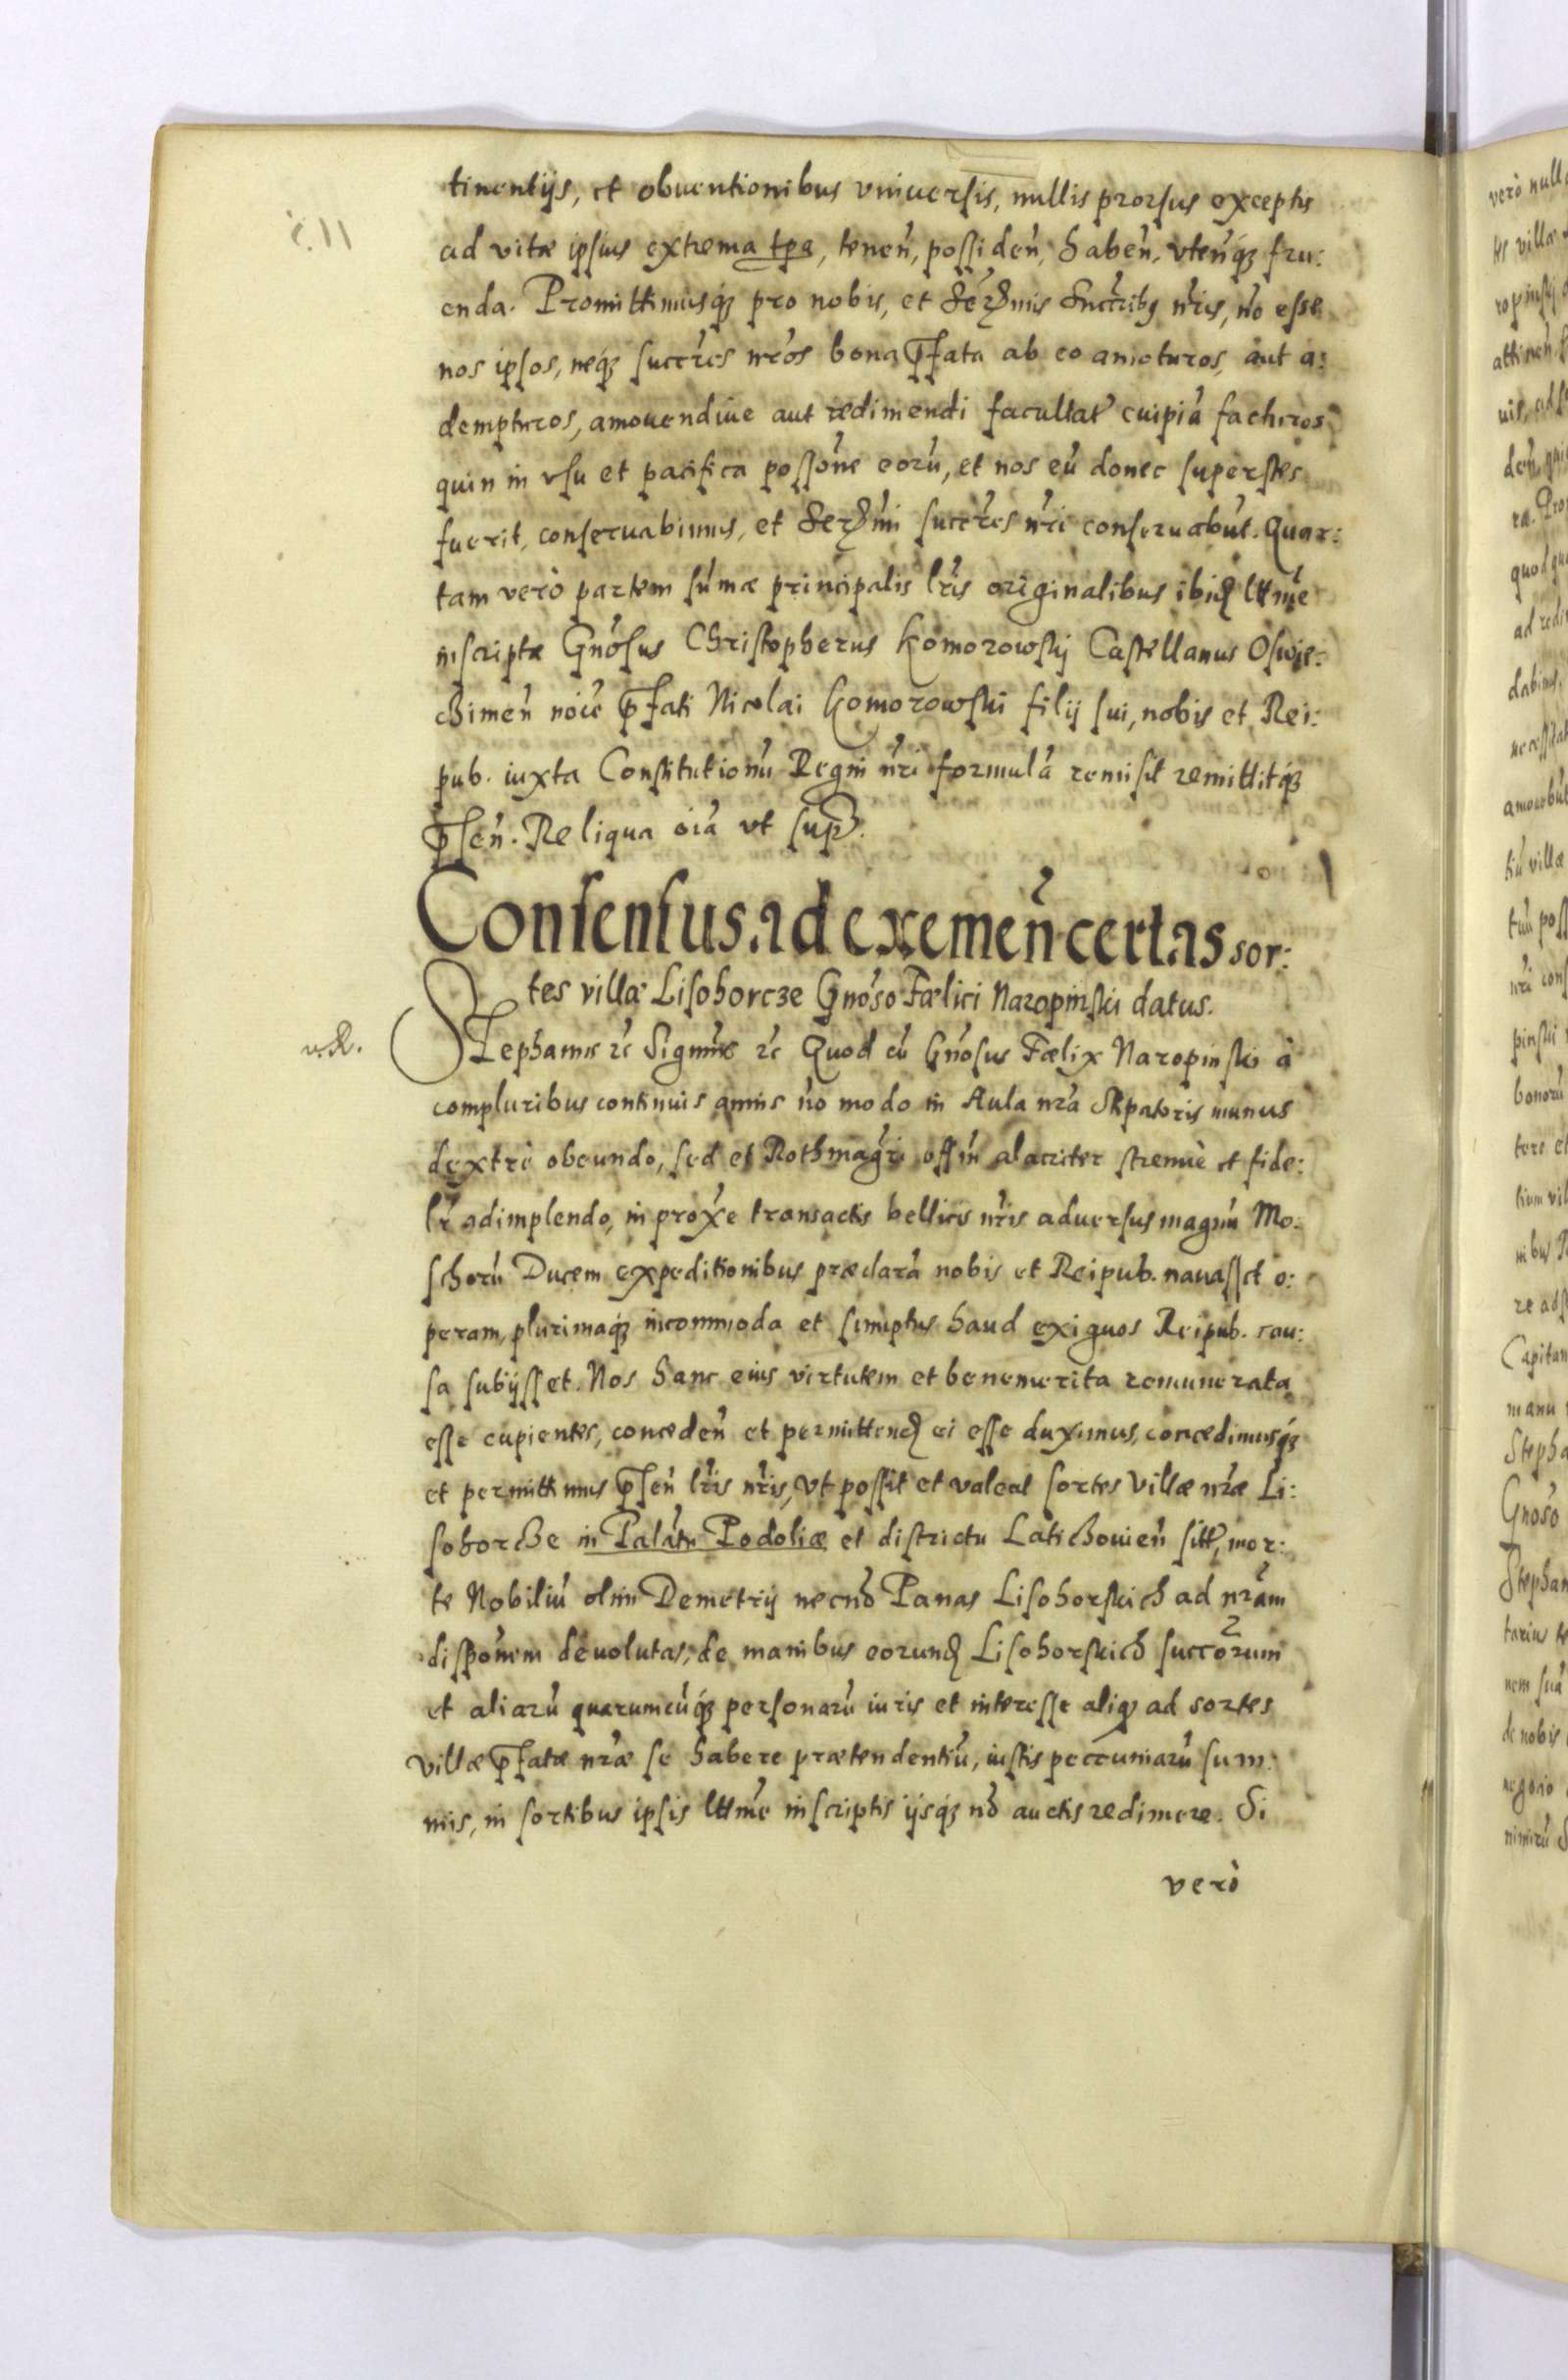 tinentijs, et obuentionibus vniuersis, nullis prorsus exceptis
ad vitæ ipsius extrema tpa, teneñ, possideñ, habeñ, vteñq3 fru:
enda. Promittimusq3 pro nobis, et Serẽmis Succrĩbs nr̃is, nõ esse
nos ipsos, neq3 succr̃es nr̃os bona p̃fata ab eo amoturos, aut a:
dempturos, amouendiue aut redimendi facultatẽ cuipiã facturos
quin in vsu et pacifica possõne eorũ, et nos eũ donec superstes
fuerit, conseruabimus, et Serẽmi succr̃es nr̃i conseruabũt. Quar:
tam verò partem sũmæ principalis lr̃is originalibus ibid̃ ltt̃me
inscriptæ Gnõsus Christopherus Komorowskj Castellanus Oswie:
chimeñ noiẽ p̃fati Nicolai Komorowski filij sui, nobis et Rei:
pub. iuxta Constitutionũ Regni nr̃i formulã remisit remittitq3
p̃señ. Reliqua oĩa vt supr̃.
Consensus ad exemeñ certas sor:
tes villæ Lisohorcze Gnõso Fælici Naropinski datus.
v.R.
Stephanus rc̃ Signm̃s rc̃ Quod cũ Gnõsus Fælix Naropinski à
compluribus continuis annis nõ modo in Aula nr̃a Stipatoris munus
dextrè obeundo, sed et Rothmagr̃i offm̃ alacriter strenuè et fide:
lr̃ adimplendo, in prox̃e transactis bellicis nr̃is aduersus magnũ Mo:
schorũ Ducem expeditionibus præclarã nobis et Reipub. nauasset o:
peram, plurimaq3 incommoda et sumptus haud exiguos Reipub. cau:
sa subijsset. Nos hanc eius virtutem et benemerita remunerata
esse cupientes, concedeñ et permittend̃ ei esse duximus, concedimusq3
et permittimus p̃señ lr̃is nr̃is, vt possit et valeat sortes Villæ nr̃æ Li:
sohorche in Palãtu Podoliæ et districtu Latichouieñ sitt̃, mor:
te Nobiliũ olim Demetrij necnõ Panas Lisohorskich ad nr̃am
dispõnem deuolutas, de manibus eorund̃ Lisohorskich succõrum
et aliarũ quarumcũq3 personarũ iuris et interesse aliq̃ ad sortes
villæ p̃fatæ nr̃æ se habere prætendentiũ, iustis peccuniarũ sum:
mis, in sortibus ipsis ltt̃me inscriptis ijsq3 nõ auctis redimere. Si
verò